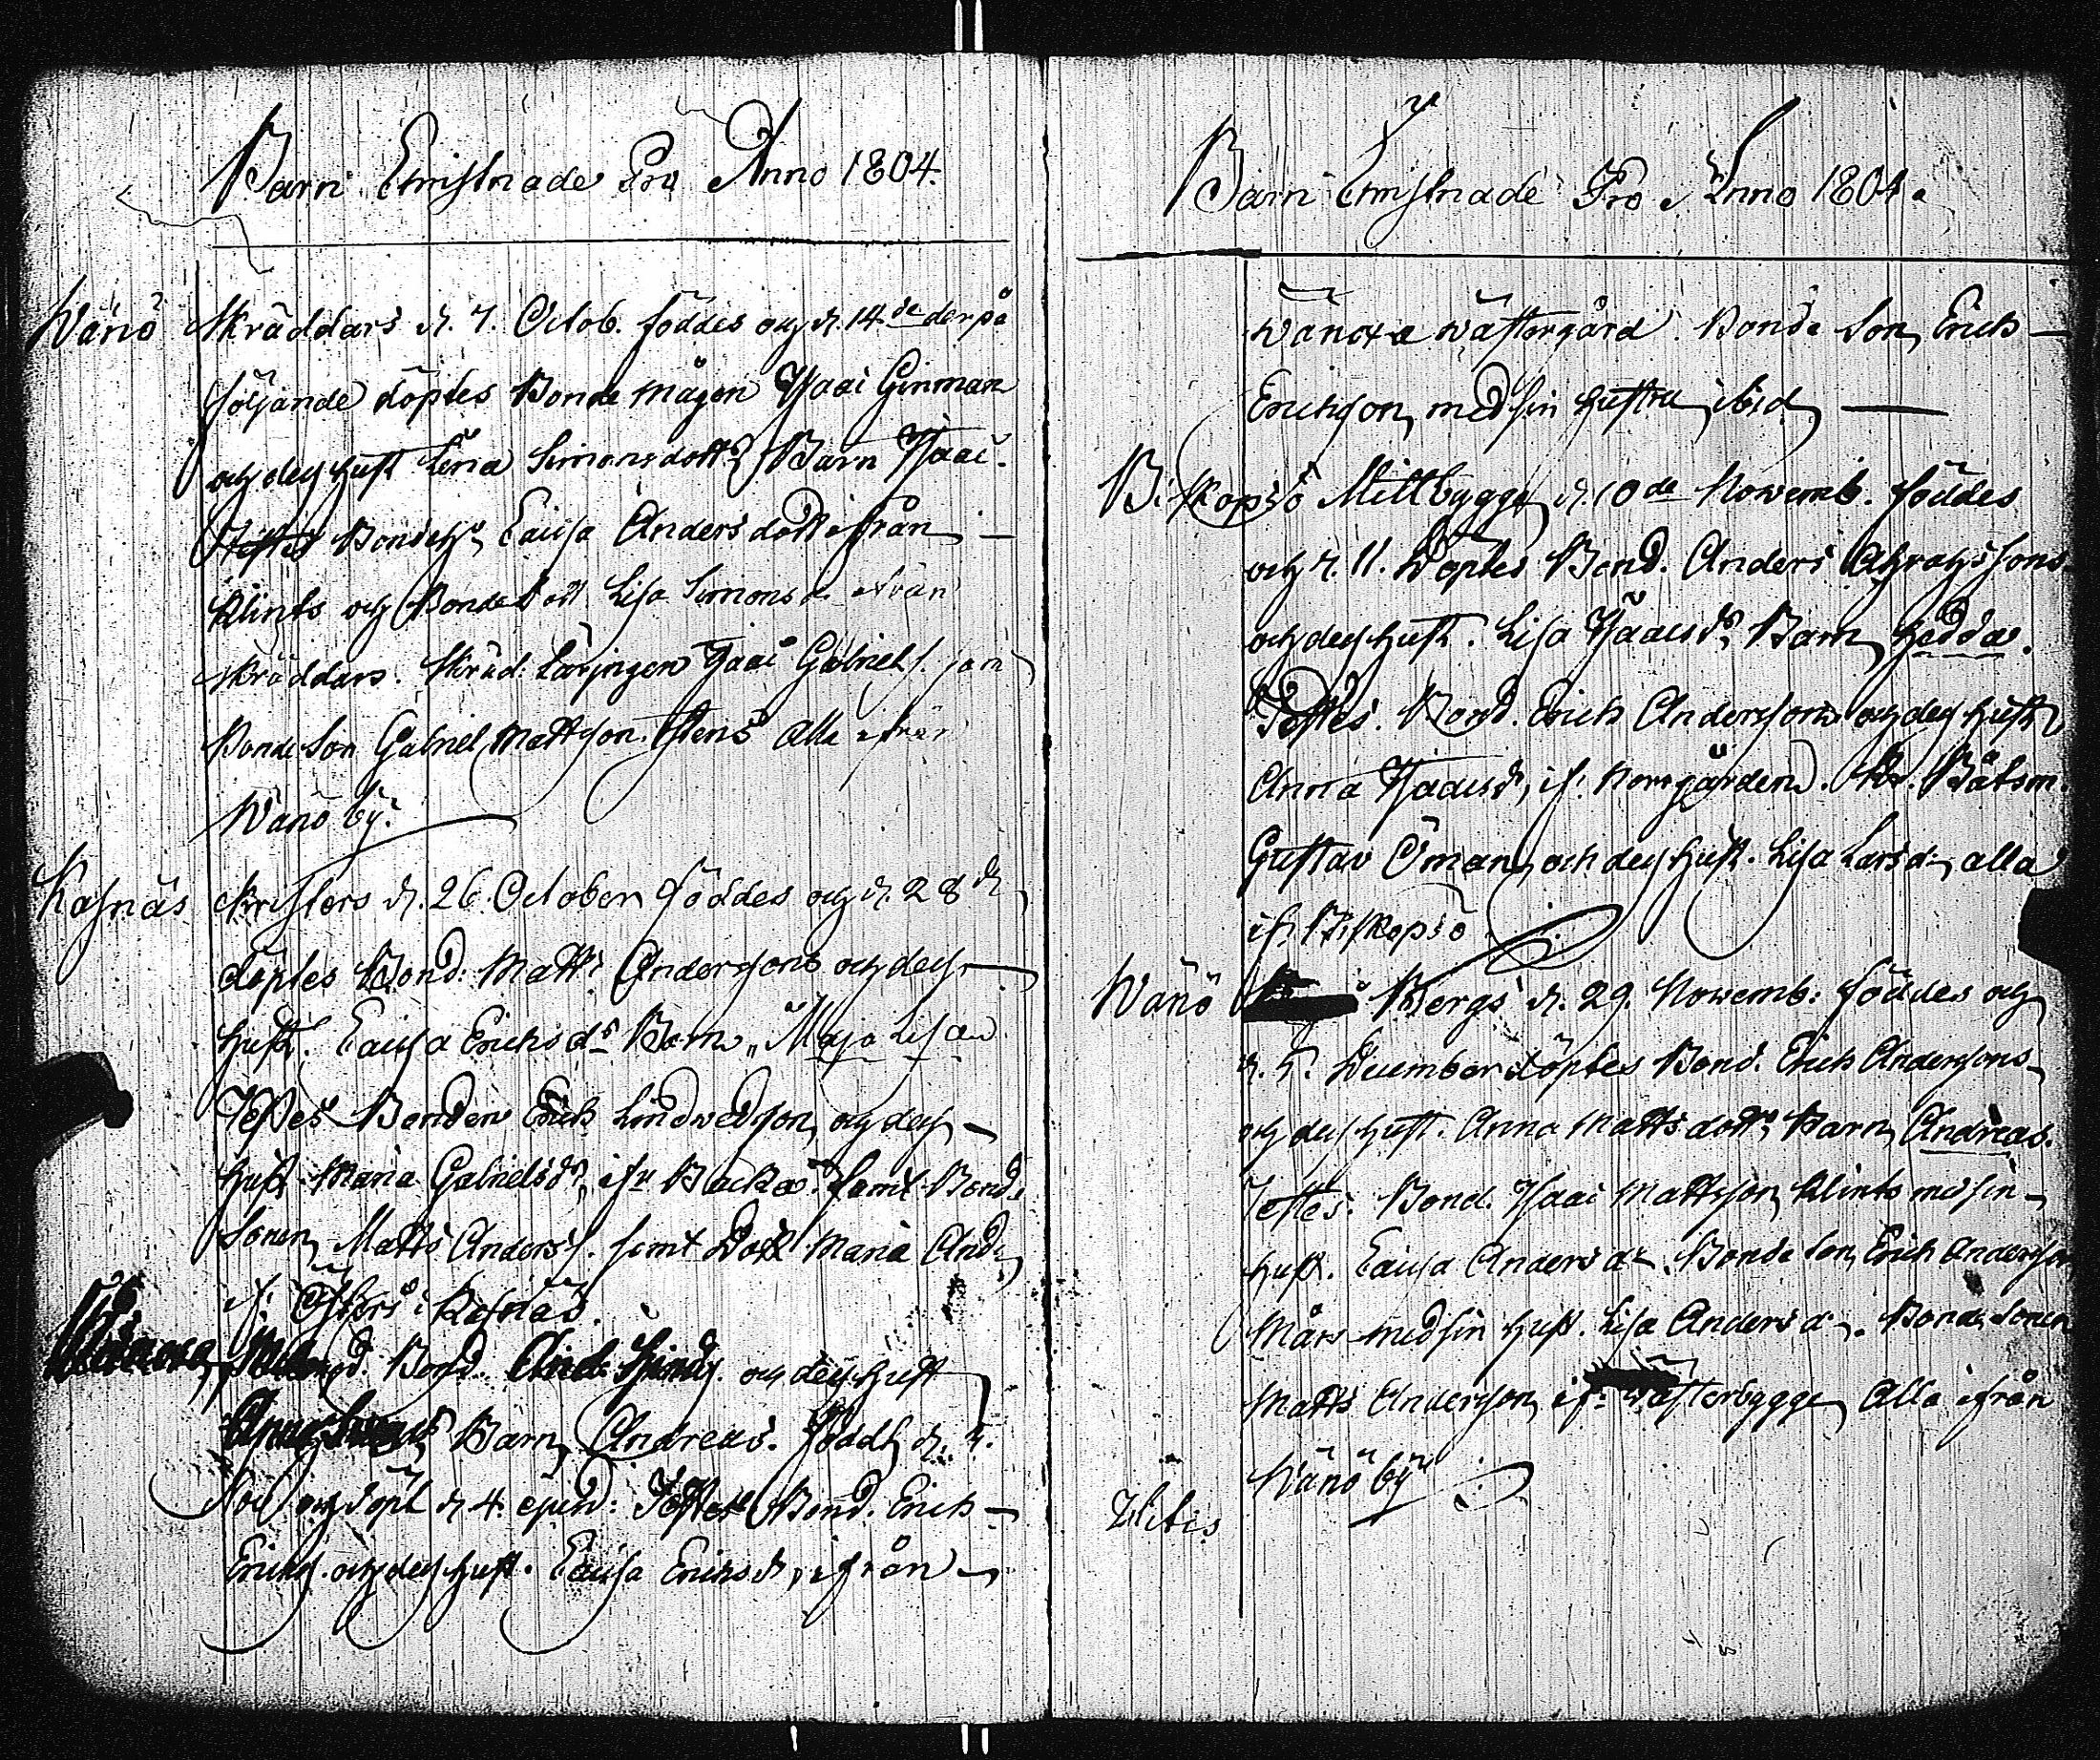 Barn Christnade Pro Anno 1804.
Wänö Skräddars d. 7. Octob. föddes och d. 14de derpå
följande döptes Bonde mågen Isaac Ginman
och dess hust Lena Simonsdottr Barn Isaac.
Testes Caisa Anders dott ifrån
Klints och Bonde dott Lisa Simons d. ifrån
Skräddars. Skräd. Lärjngen Isaac Gabriels. son
Bonde Son Gabriel Mattsson Alla ifrån
Wänö by.
Kasnäs d. 26 October föddes och d. 28de
döptes Bond: Matts Anderssons och dess
hust. Caisa Erichs dr Barn, Maja Lisa
Testes Bonden Erich Lindwedsson, och dess
hust Maria Gabrielsdr, ifr Backa. samt Bond.
Sonen Matts Anderss. samt Dott Maria And.
if. i Kasnäs.
Bond. och dess hust
Barn, Andreas. Född d.
Nov och döpt d 4. ejusd: Testes Bond. Erich
Erichs. och dess hust. Caisa Erichsd, ifrån
Barn Christnade Pro Anno 1804.
Wänoxa Wästergård. Bonde Son, Erich
Erichsson, med sin hustru, ibid
Biskopsö Mittbygge, d. 10de Novemb. föddes
och d. 11. Döptes Bond. Anders
och dess hust. Lisa Isaacs dr Barn, Hedda.
Testes. Bond. Erich Anderssons och dess hust,
Anna Isaacsd, if. Norrgården. Båtsm.
Gustav Öman, och dess hust. Lisa Larsd, alla
if. Biskopsö
Wänö Bergs d. 29. Novemb: föddes och
d. December döptes Bond. Erich Anderssons
och dess hust. Anna Matts dottr Barn, Andreas.
Testes. Bond. Isaac Mattsson, Klints med sin
hust. Caisa Anders dr. Bonde Son, Erich Andersson
Mårs med sin hust. Lisa Anders d. Bonde Sonen
Matts Andersson, if. Wästerbygge, Alla ifrån
Wänö by